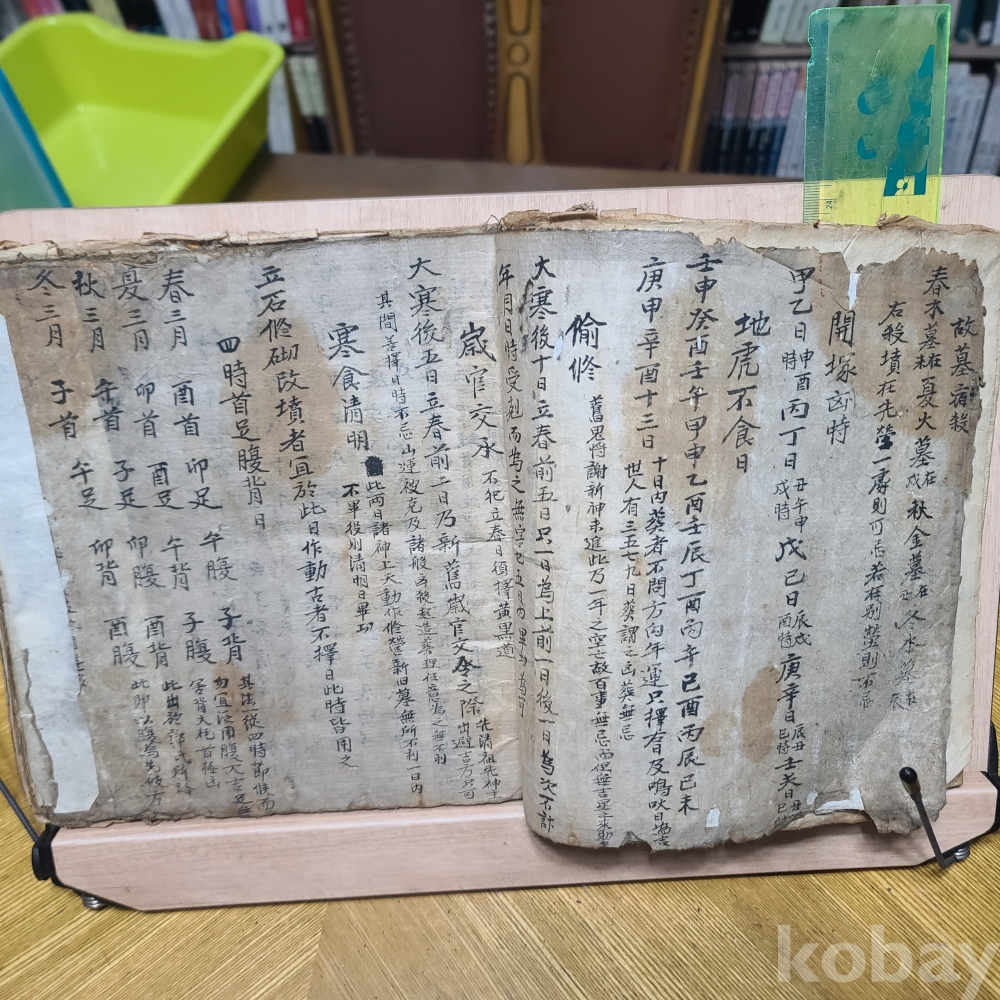 故墓宿殺
春木墓在未 夏火墓在戌 秋金墓在 冬水墓在辰
右殺墳在先塋一處則可忌若在別塋則不忌
開塚凶時
甲乙日申酉時 丙丁日丑午申戌時 戊己日辰戌酉時 庚辛日辰丑巳時 壬癸日
地虎不食日
壬申癸酉壬午甲申乙酉壬辰丁酉丙午己酉丙辰己未
庚申辛酉十三日
十日內葬者不問方內年運只擇右日及鳴吠日為吉
世人有三五七九日葬謂之凶葬無忌
偷修
舊鬼將謝新神未進此乃一年之空亡故百事無忌而但無吉星之來助
大寒後十日立春前五日只一日為上前一日後一日為次不計
年月日時受剋而為之無害也五日內畢功為可
歲官交承 不犯立春日須擇黃黑道
大寒後五日立春前二日乃新舊歲官交令之際 先清祖先神主出避吉方只可
其間善擇日時不忌山運被克及諸般凶殺起造葬埋任意為之無不利
寒食清明
此兩日諸神上天動作修營新舊墓無所不利一日內
不畢役則清明日畢功
立石修砌改墳者宜於此日作動古者不擇日此時皆用之
四時首足腹背日
春三月 酉首 卯足 午腹 子背
夏三月 卯首 酉足 午背 子腹
秋三月 午首 子足 卯腹 酉背
冬三月 子首 午足 卯背 酉腹
其法從四時節候而
勿宜泛用腹大吉足
害背大耗首極凶
此出於
此即以腹為先破方